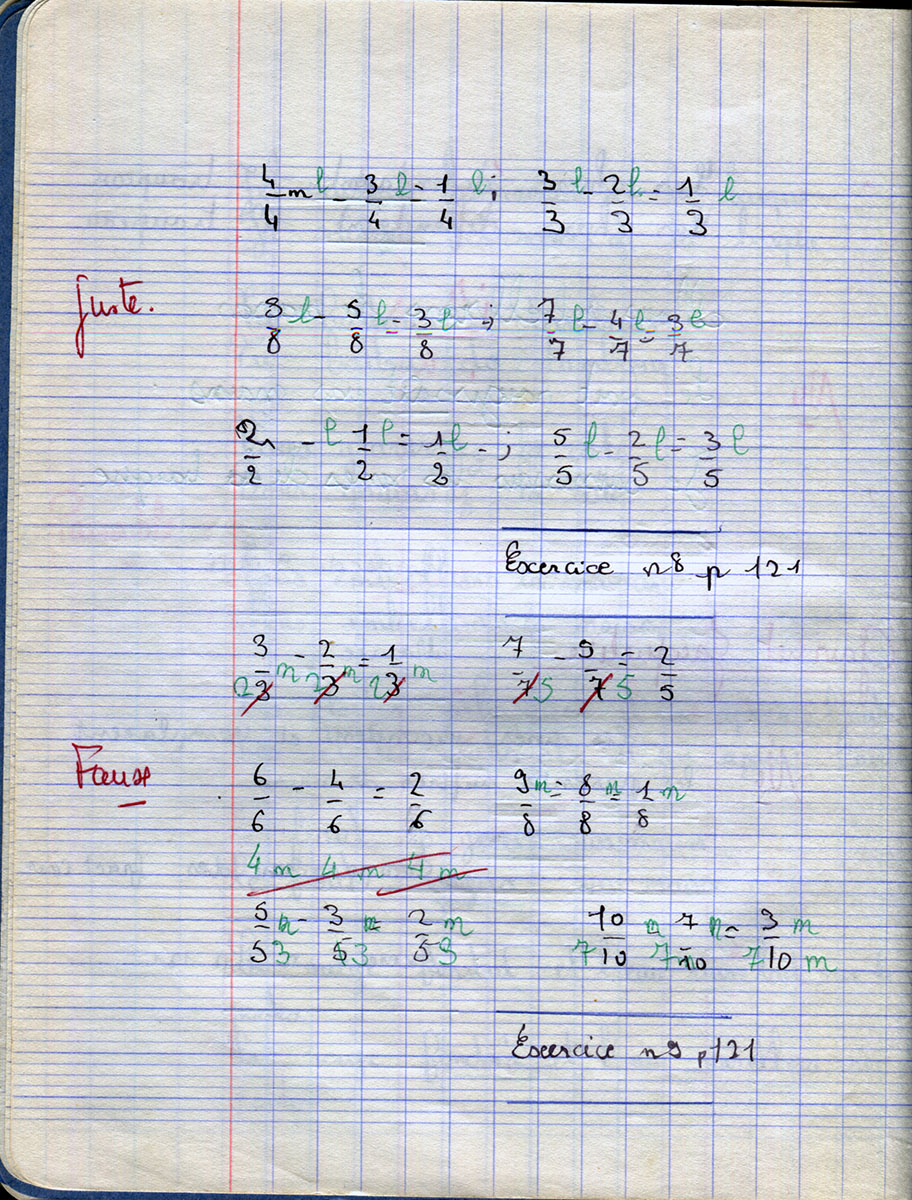 4/4 m l - 3/4 l = 1/4 l ; 3/3 l - 2/3 l = 1/3 l
Juste.
8/8 l - 5/8 l = 3/8 l ; 7/7 l - 4/7 l = 3/7 l
2/2 - l 1/2 l = 1/2 l - ; 5/5 l - 2/5 l = 3/5 l
Exercice n8 p 121
3/3 2 m - 2/3 2 m = 1/3 2 m 7/7 5 - 5/7 5 = 2/5
Faux
6/6 - 4/6 = 2/6 9/8 m = 8/8 m = 1/8 m
4 m 4 m 4 m
5/5 3 m - 3/5 3 m = 2/5 3 m 10/10 7 m - 7/10 7 m = 3/10 7 m m
Exercice n9 p 121